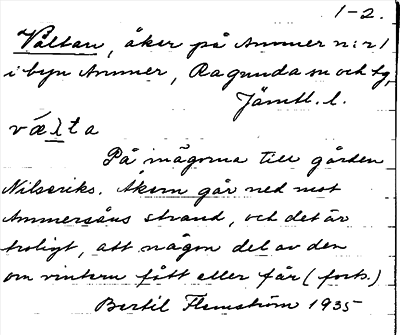 1-2.
Vältan, åker på Ammer n:r 1
i byn Ammer, Ragunda sn och tg,
Jämtl. l.
væ̀lta
På ägorna till gården
Nilseriks. Åkern går ned mot
Ammeråns strand, och det är
troligt, att någon del av den
om vintern fått eller får (forts.)
Bertil Flemström 1935